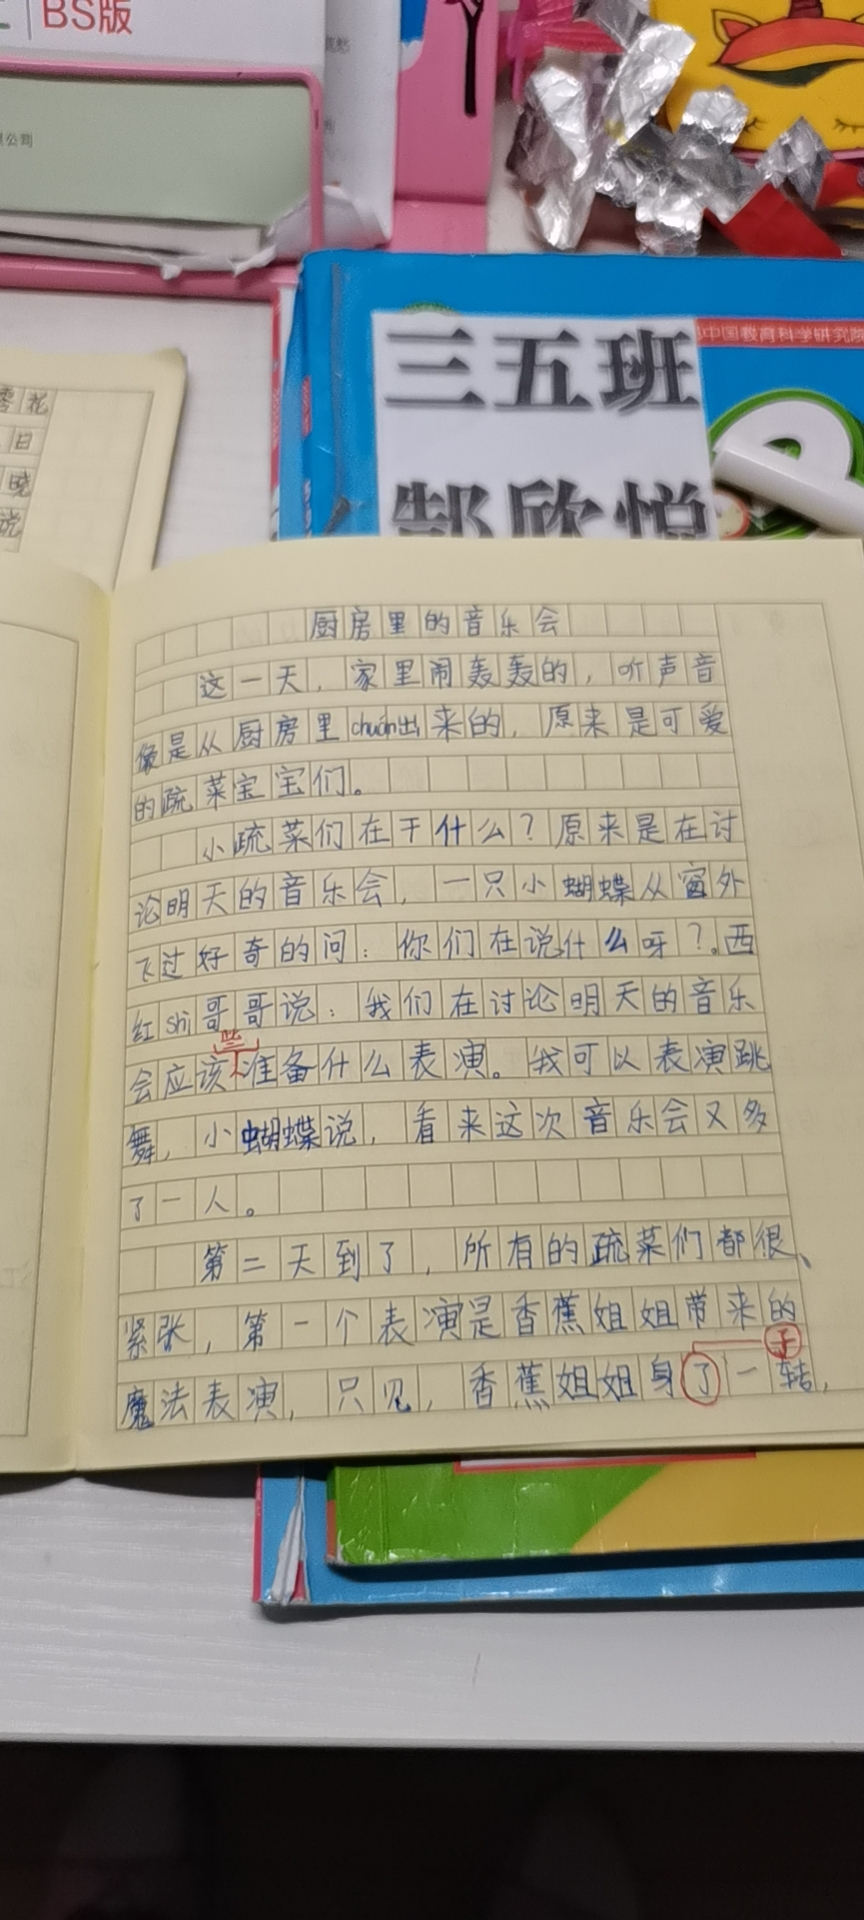 BS版
限公司
中国教育科学研究院
三五班
郜欣悦
零花
日
晓
说
厨房里的音乐会
这一天，家里闹轰轰的，听声音
像是从厨房里chuán出来的，原来是可爱
的疏菜宝宝们。
小疏菜们在干什么？原来是在讨
论明天的音乐会，一只小蝴蝶从窗外
飞过好奇的问：你们在说什么呀？。西
红shi哥哥说：我们在讨论明天的音乐
些
会应该准备什么表演。我可以表演跳
舞，小蝴蝶说，看来这次音乐会又多
了一人。
第二天到了，所有的疏菜们都很、
紧张，第一个表演是香蕉姐姐带来的
子
魔法表演，只见，香蕉姐姐身了一转，